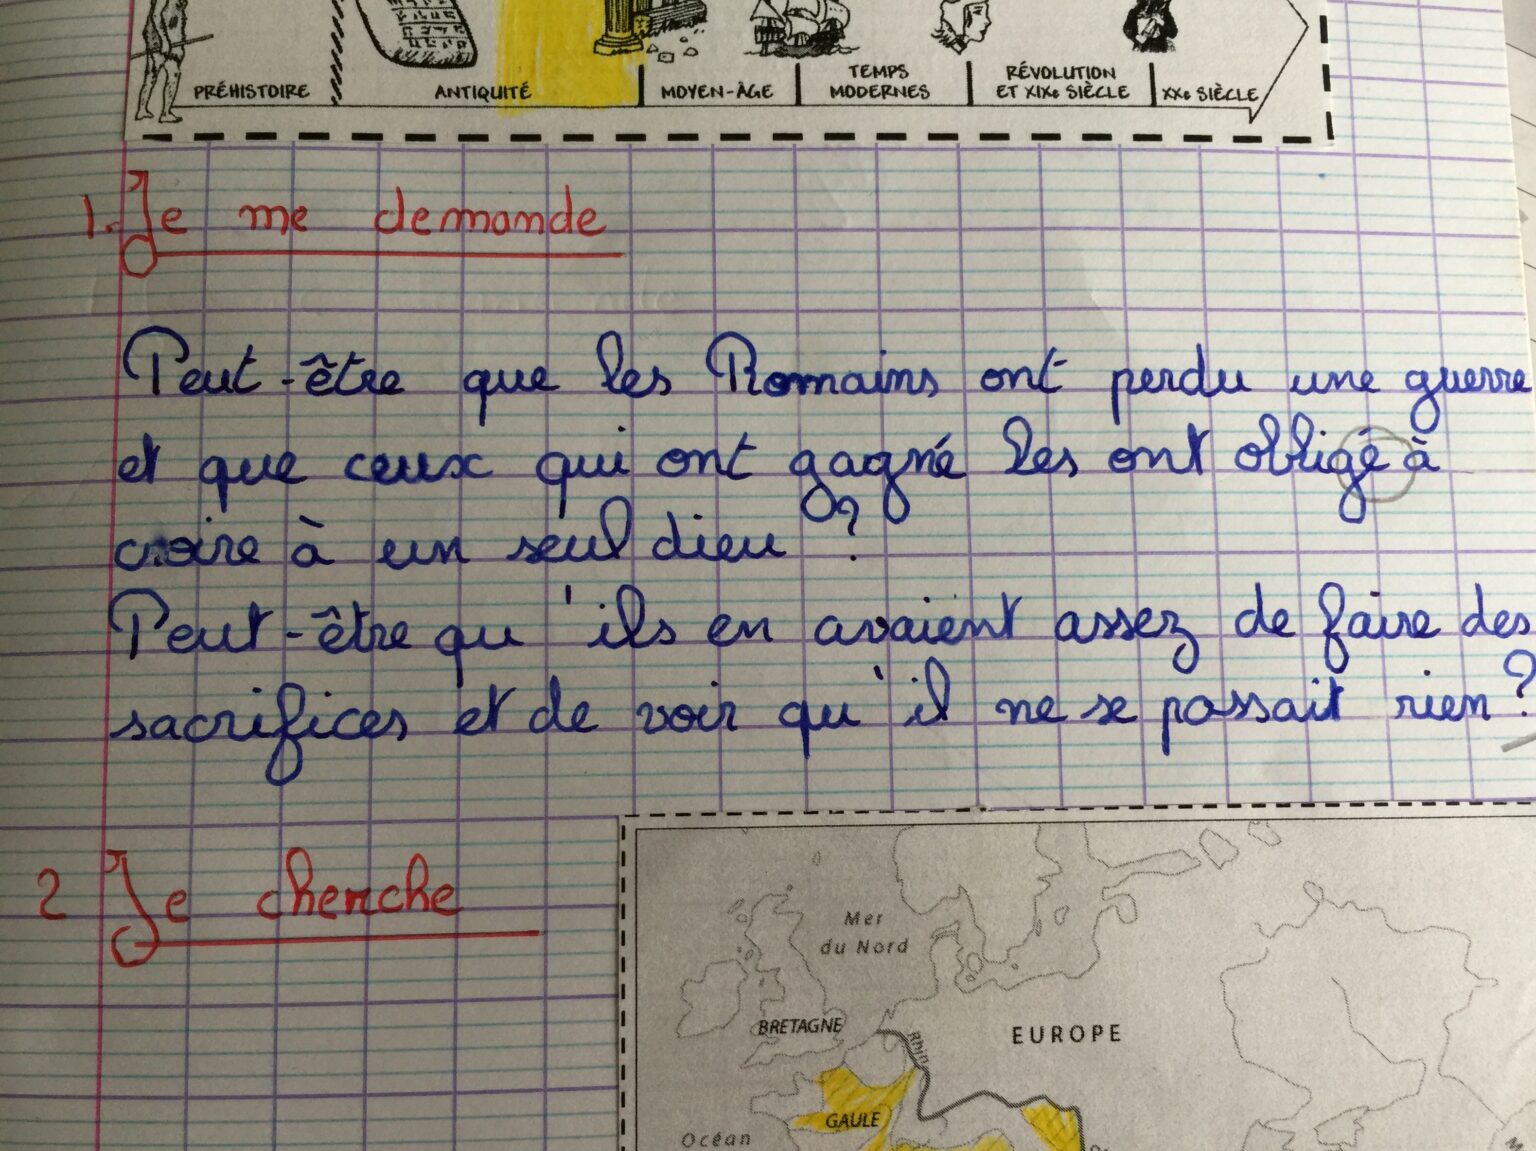 PRÉHISTOIRE ANTIQUITÉ MOYEN-ÂGE TEMPS MODERNES RÉVOLUTION ET XIXe SIÈCLE XXe SIÈCLE
1. Je me demande
Peut-être que les Romains ont perdu une guerre
et que ceux qui ont gagné les ont obligé à
croire à un seul dieu ?
Peut-être qu'ils en avaient assez de faire des
sacrifices et de voir qu'il ne se passait rien ?
2 Je cherche
Mer
du Nord
BRETAGNE
EUROPE
Rhin
GAULE
Océan